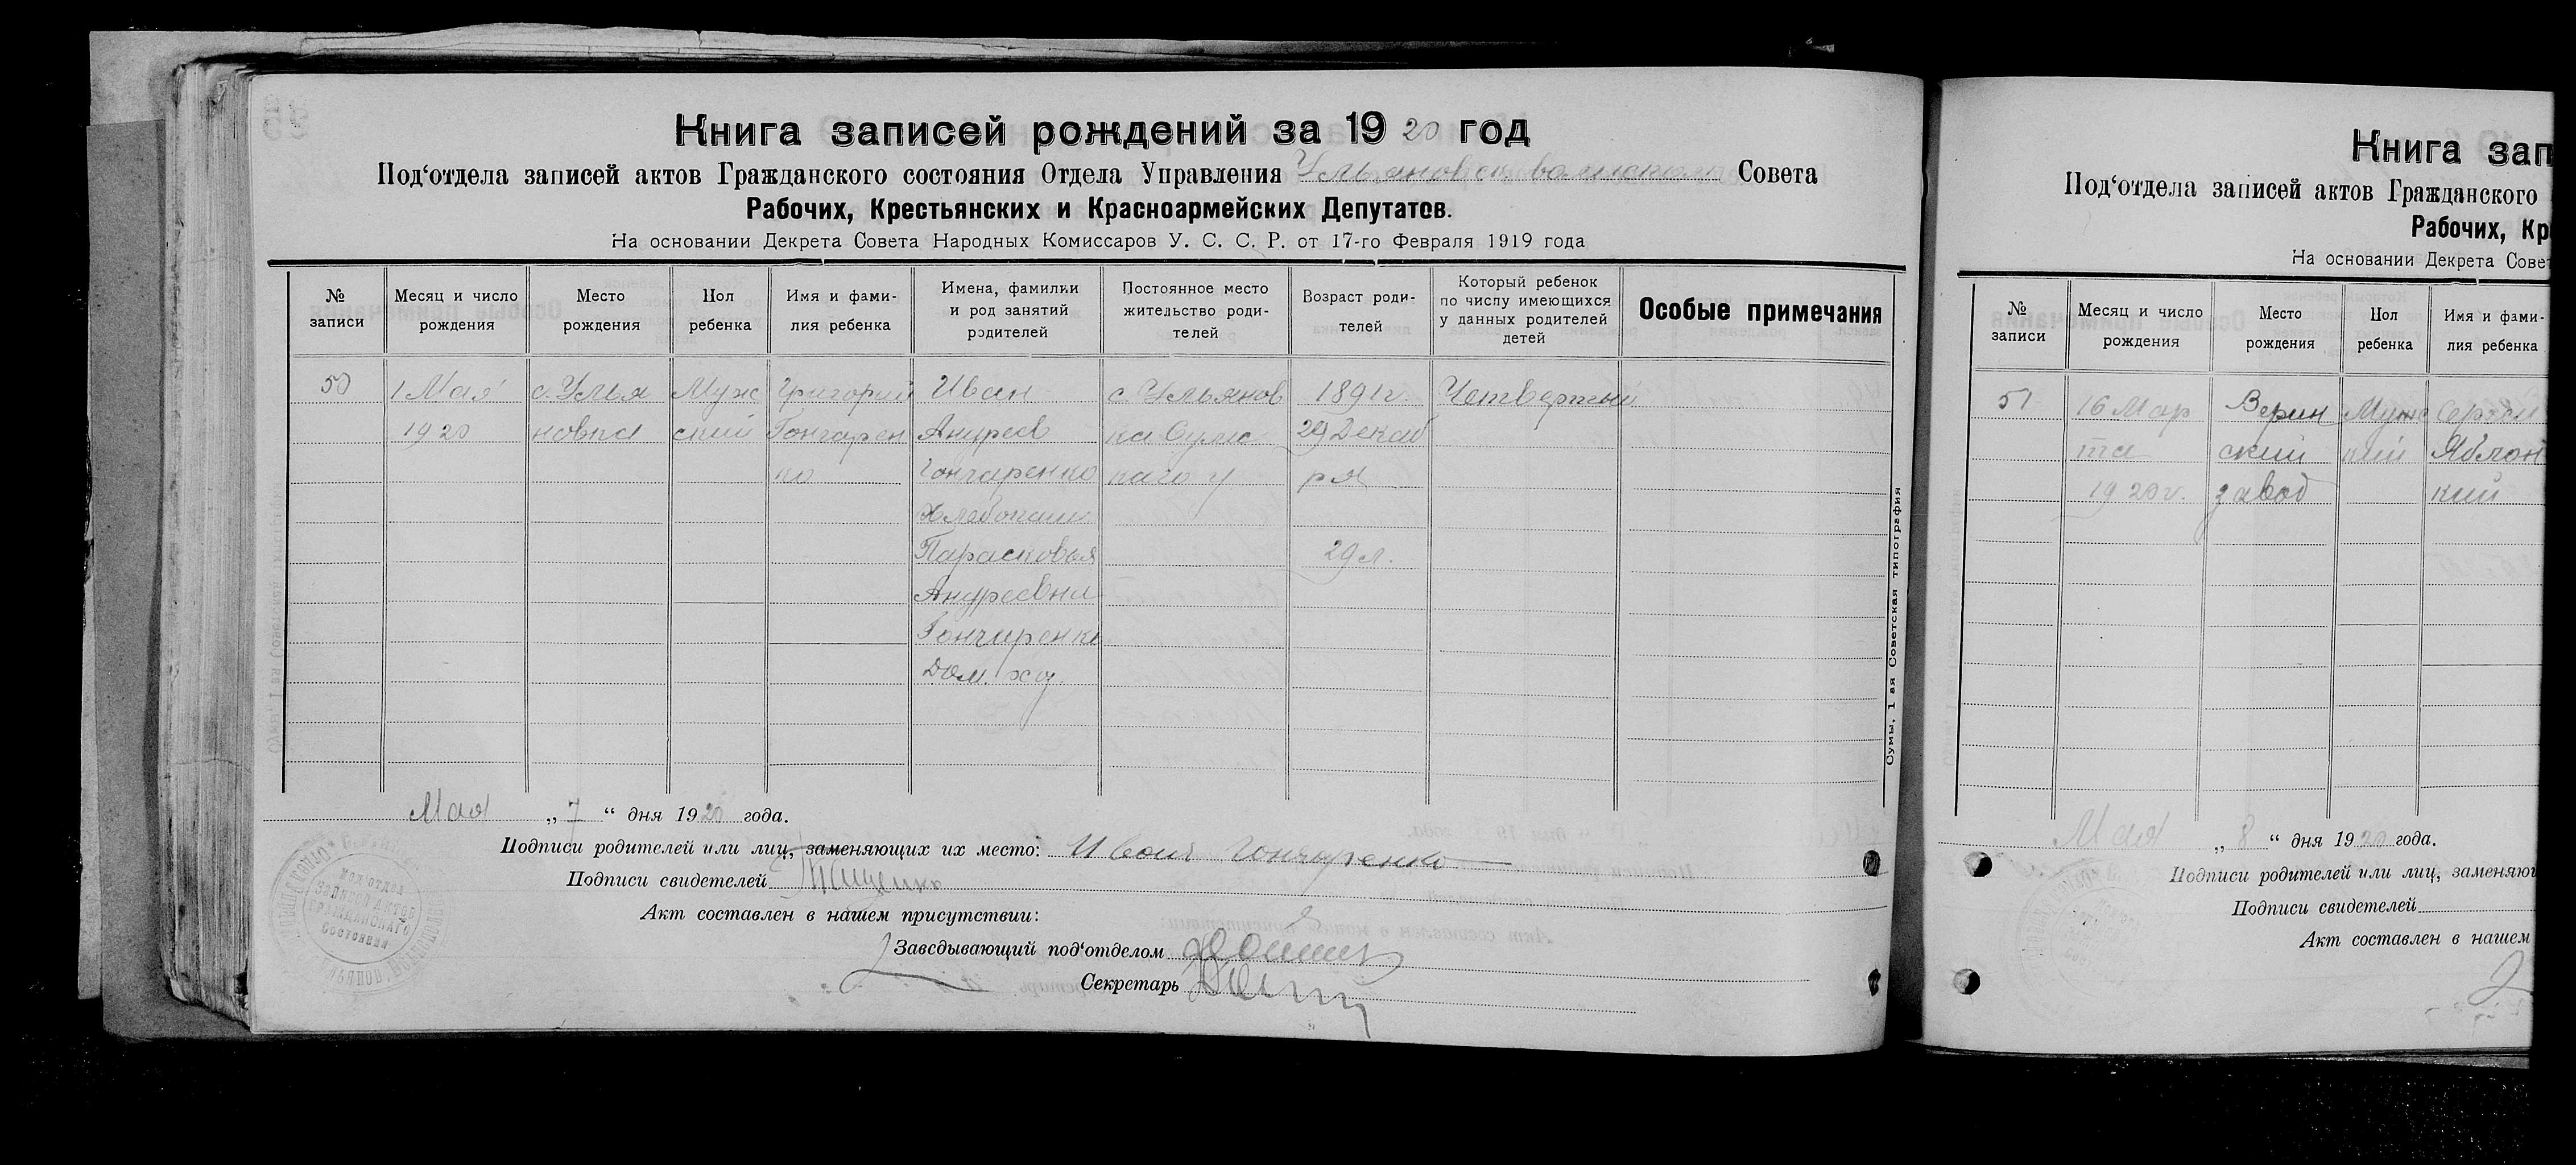 Книга записей рождений за 1920 год
Под‘отдела записей актов Гражданского состояния Отдела Управления Ульяновск. волисполк Совета
Рабочих, Крестьянских и Красноармейских Депутатов.
На основании Декрета Совета Народных Комиссаров У. С. С. Р. от 17-го Февраля 1919 года
№ записи
Месяц и число рождения
Место рождения
Пол ребенка
Имя и фами-
лия ребенка
Имена, фамилии
и род занятий
родителей
Постоянное место
жительство роди-
телей
Возраст роди-
телей
Который ребенок
по числу имеющихся
у данных родителей
детей
Особые примечания
50
1 Мая
1920
с. Улья
новка
Муж
ский
Григорий
Гончарен
ко
Иван
Андреев
Гончаренко
Хлебопаш.
Парасковья
Андреевна
Гончаренко
Дом. хоз.
с. Ульянов
ка Сумс
каго у
1891 г.
29 Декаб
ря
29 л.
Четвертый
Мая „ 7 “ дня 1920 года.
Подписи родителей или лиц, заменяющих их место: Иван Гончаренко
Подписи свидетелей Тищенко
Акт составлен в нашем присутствии:
Заведывающий под‘отделом
Секретарь
под‘отдел
записи актов
гражданскаго
состояния
Сумы, 1 ая Советская типография
Книга зап
Под‘отдела записей актов Гражданского
Рабочих, Кр
На основании Декрета Совет
№ записи
Месяц и число
рождения
Место
рождения
Пол
ребенка
Имя и фами-
лия ребенка
51
16 Мар
та
1920 г.
Верин
ский
завод
Мужс
кий
Сергей
Яблон
кий
Мая „ 8 “ дня 1920 года.
Подписи родителей или лиц, заменяющ
Подписи свидетелей
Акт составлен в нашем